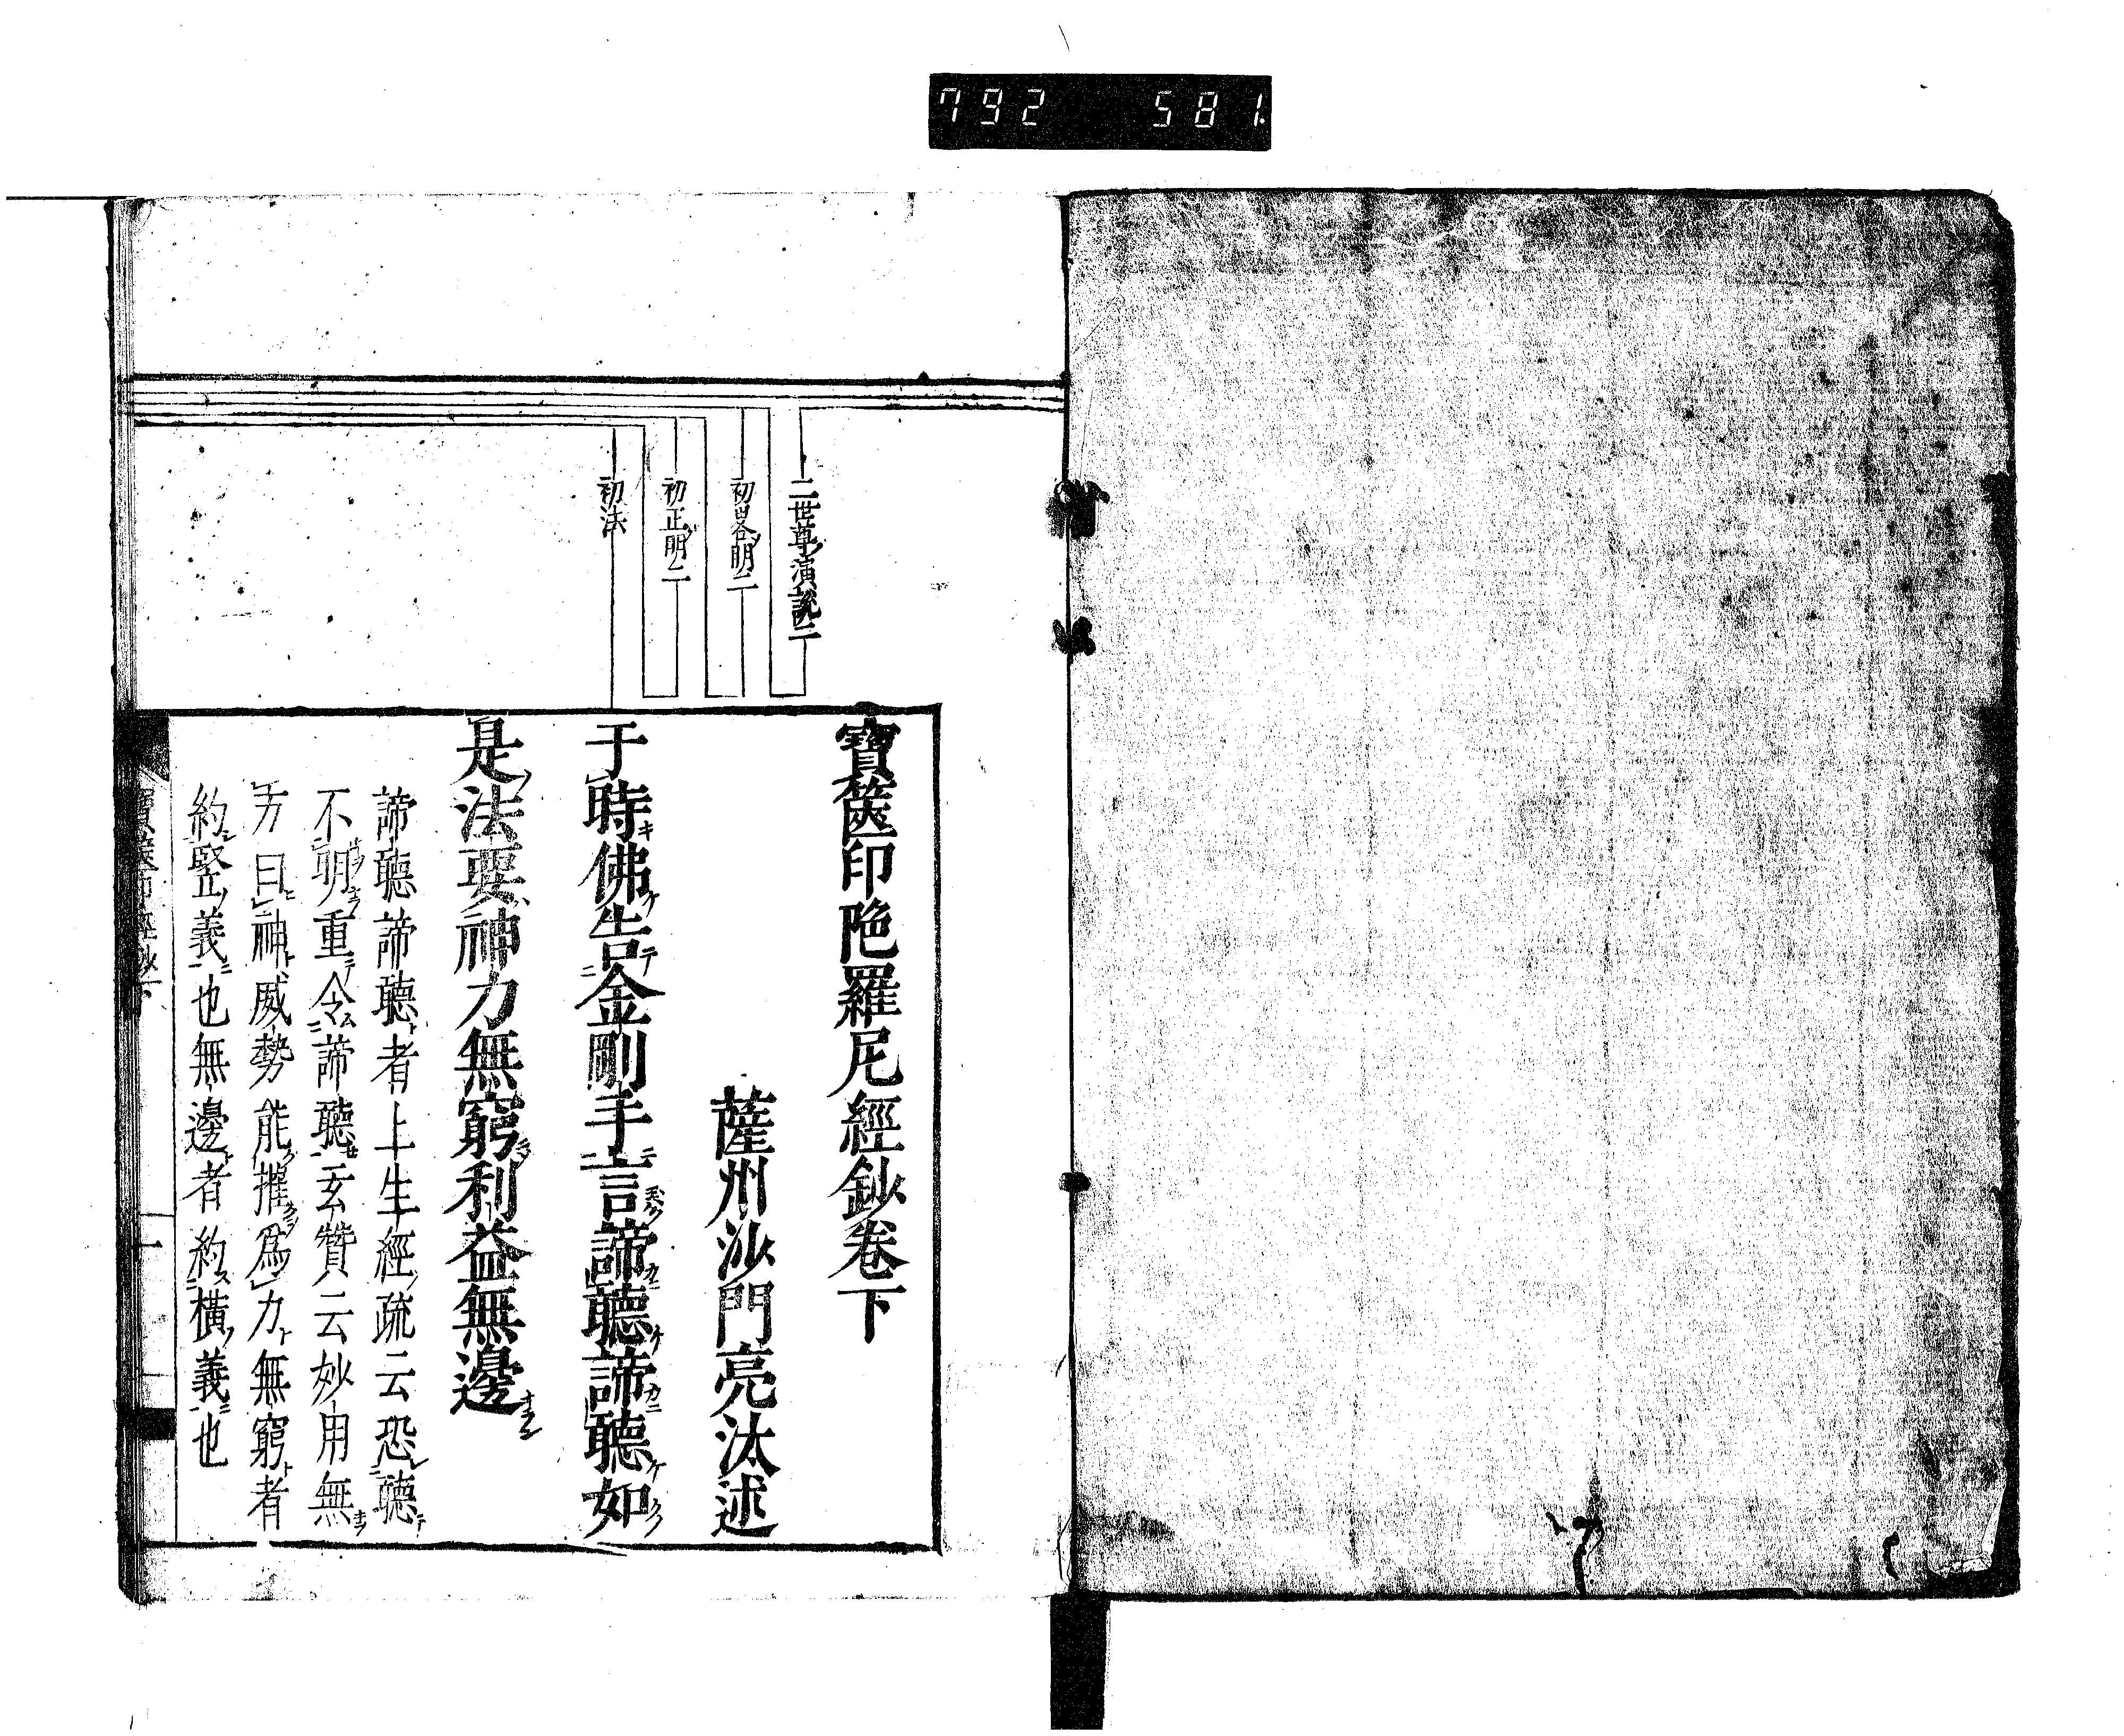 792 581.
二世尊演說二
初畧明二
初正明二
初法
寶篋印陀羅尼經鈔卷下
薩州沙門亮汰述
于時佛告金剛手言諦聽諦聽如
是法要神力無窮利益無邊
諦聽諦聽者上生經疏云恐聽
不明重令諦聽玄贊云妙用無
方曰神威勢能摧爲力無窮者
約竪義也無邊者約橫義也
寶篋印經鈔下
一